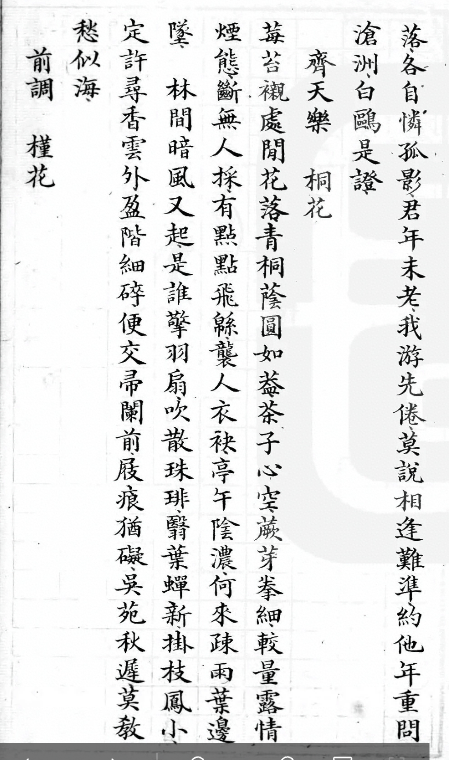 落各自憐孤影君年未老我游先倦莫說相逢難準約他年重問
滄洲白鷗是證
齊天樂　桐花
莓苔襯處閒花落青桐蔭圓如葢茶子心空蕨芽拳細較量露情
煙態斷無人採有點點飛緜襲人衣袂亭午陰濃何來疎雨葉邊
墜　林間暗風又起是誰擎羽扇吹散珠琲翳葉蟬新掛枝鳳小
定許尋香雲外盈階細碎便交帚闌前屐痕猶礙吳苑秋遲莫教
愁似海
前調　槿花